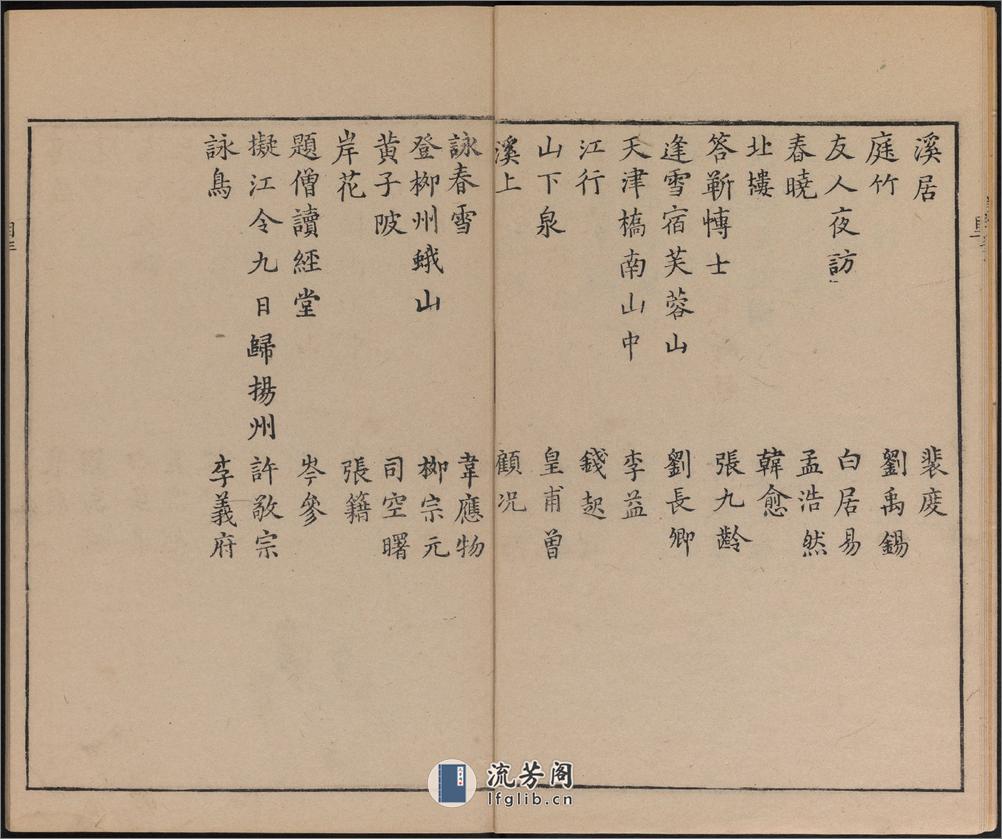 溪居 裴度
庭竹 劉禹錫
友人夜訪 白居易
春曉 孟浩然
北樓 韓愈
答靳愽士 張九齡
逢雪宿芙蓉山 劉長卿
天津橋南山中 李益
江行 錢起
山下泉 皇甫曾
溪上 顧况
詠春雪 韋應物
登柳州蛾山 柳宗元
黄子陂 司空曙
岸花 張籍
題僧讀經堂 岑參
擬江令九日歸揚州 許敬宗
詠鳥 李義府
流芳阁
lfglib.cn